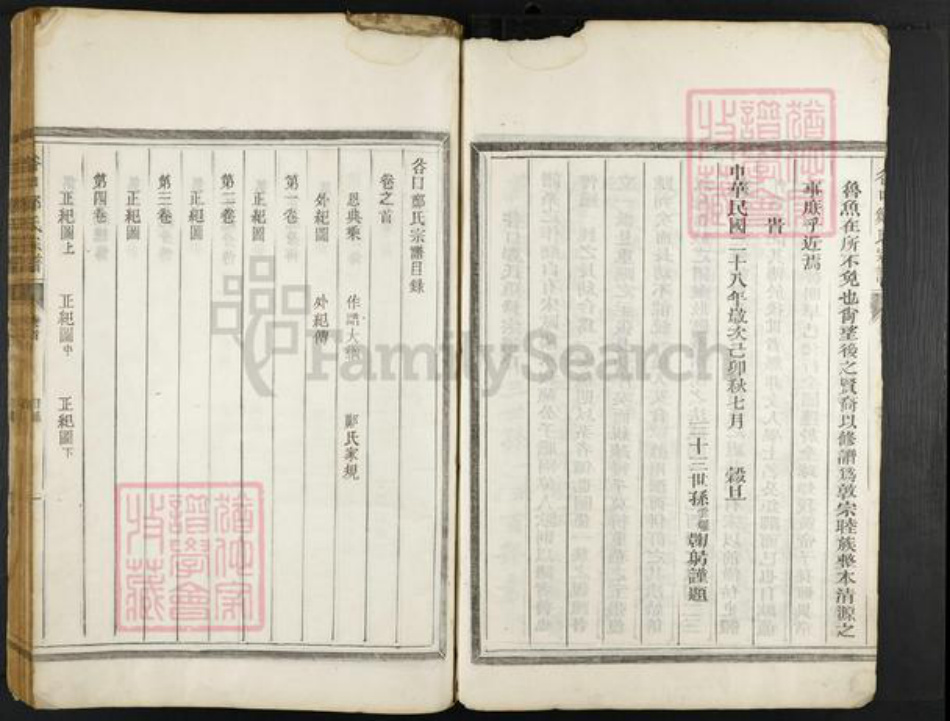 魯魚在所不免也尙望後之賢裔以修譜爲敦宗睦族整本清源之
事庶乎近焉
旹
中華民國二十八年歲次己卯秋七月 穀旦
三十三世孫 鞠躬謹題
谷口鄭氏宗譜目錄
卷之首
恩典乘 作譜大 鄭氏家規
外紀圖 外紀傳
第一卷
正紀圖
第二卷
正紀圖
第三卷
正紀圖
第四卷
正紀圖上 正紀圖中 正紀圖下
FamilySearch